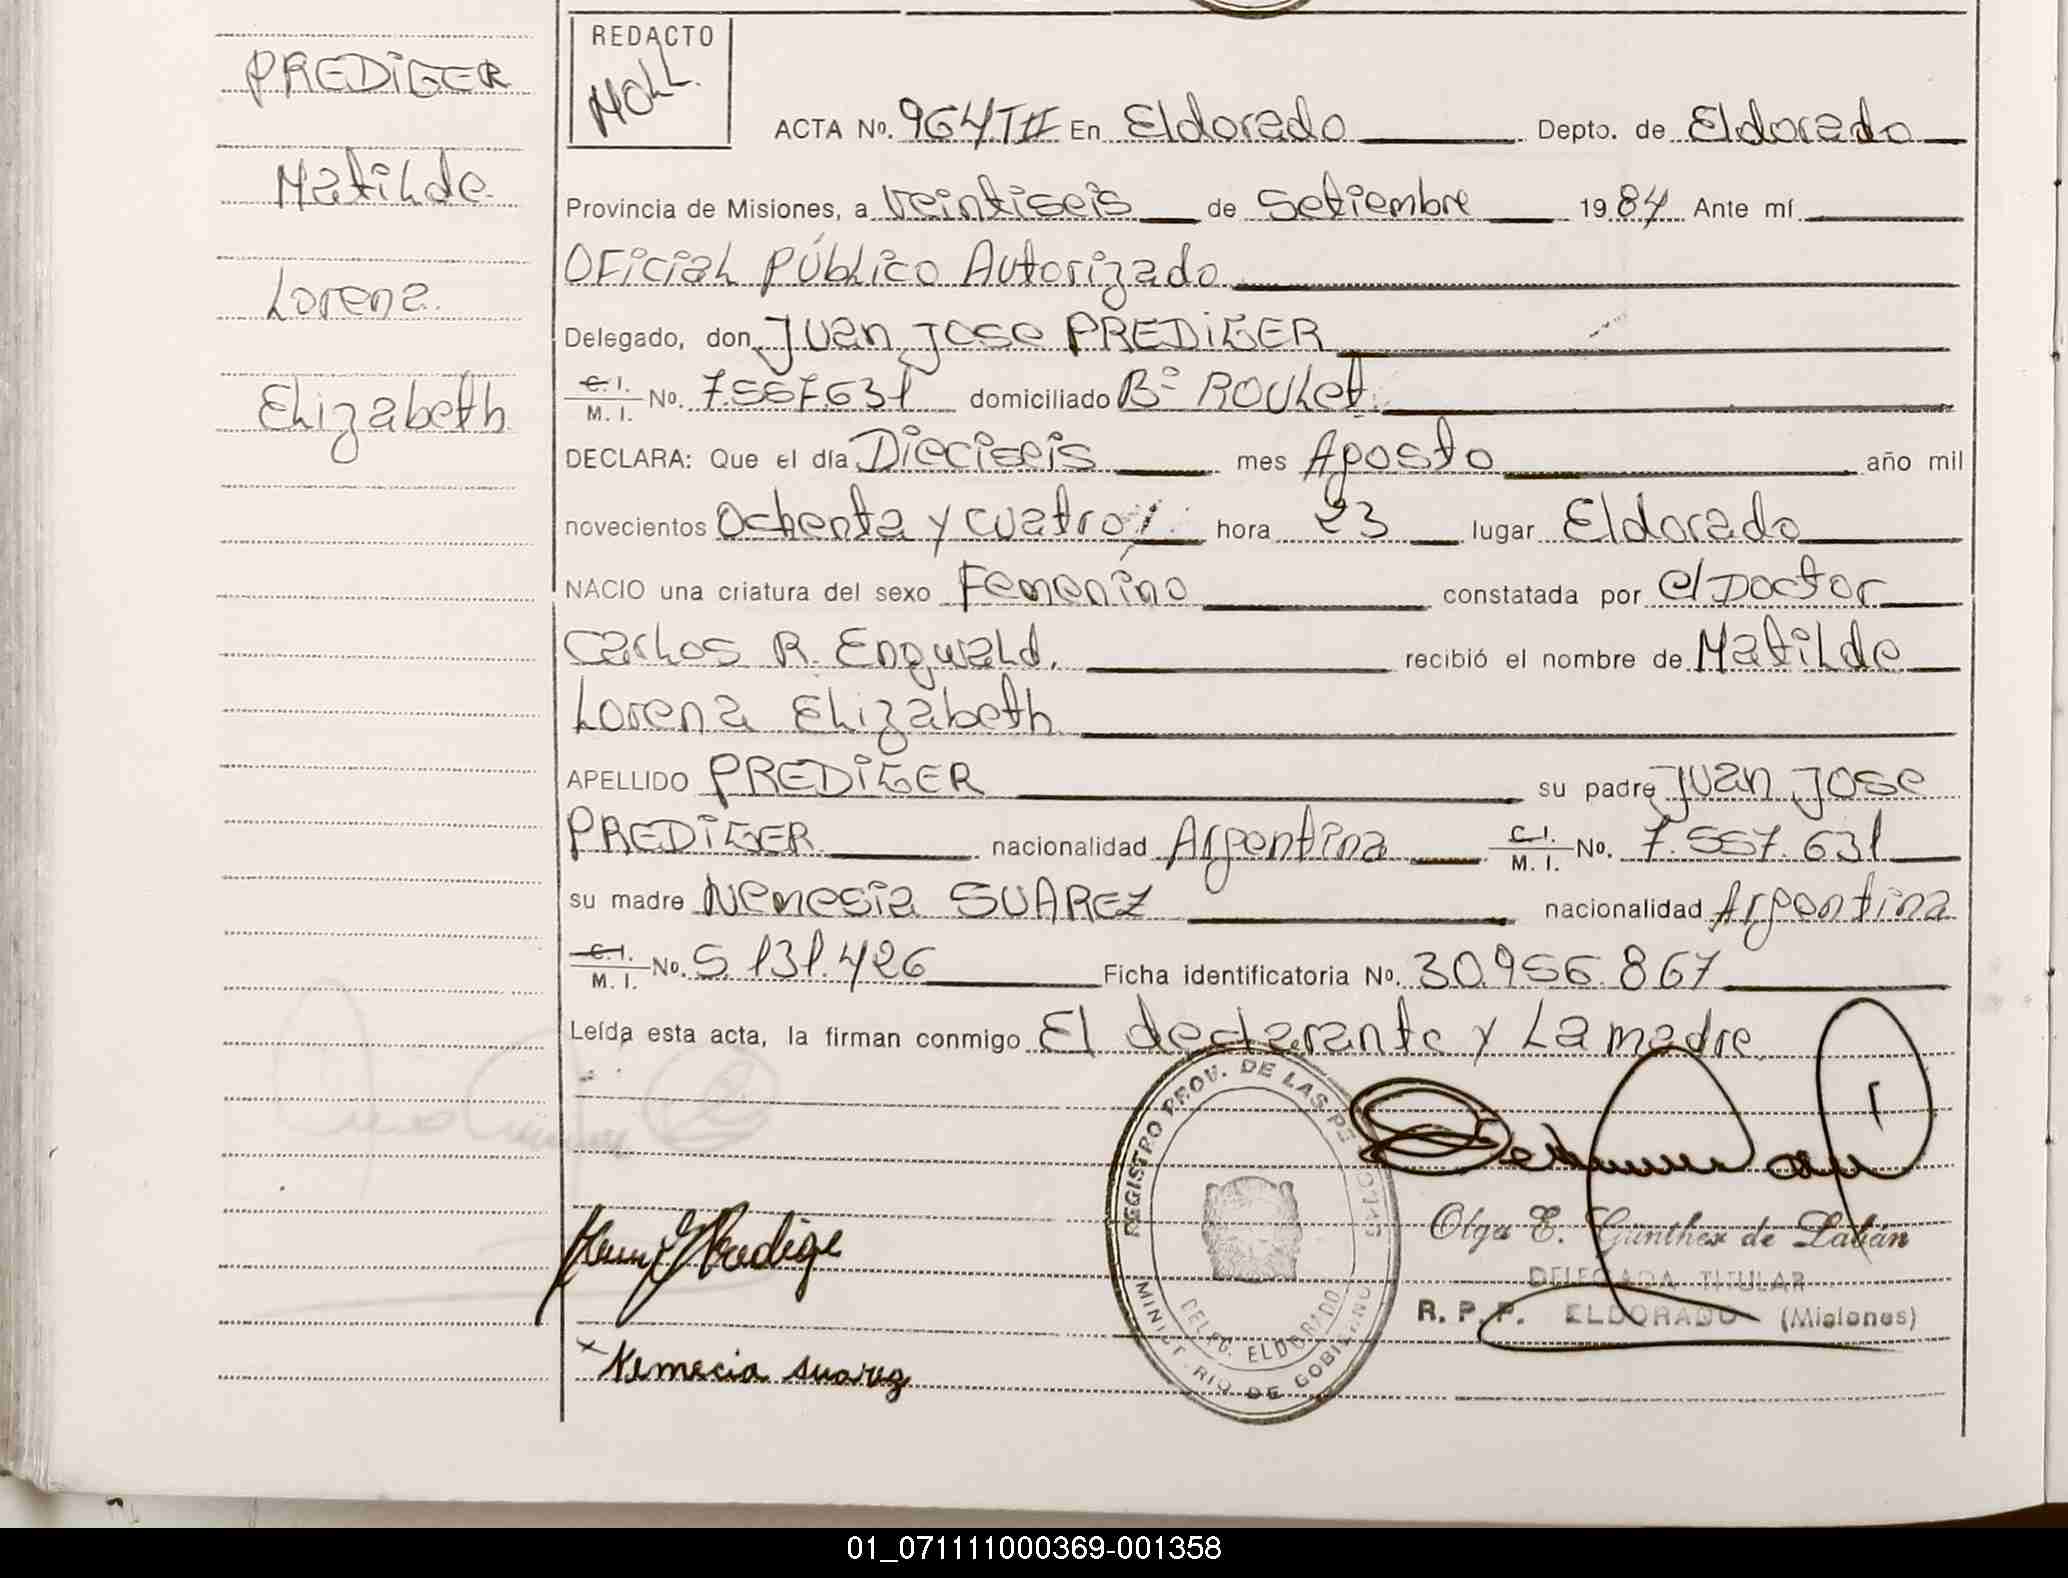 PREDIGER
Matilde
Lorena
Elizabeth
REDACTO
MOLL.
ACTA No. 964 TII En Eldorado Depto. de Eldorado
Provincia de Misiones, a veintiseis de Setiembre 1984 Ante mí
Oficial Público Autorizado
Delegado, don Juan Jose PREDIGER
C. I. M. I. No. 7.557.631 domiciliado B° ROULet.
DECLARA: Que el día Dieciseis mes Agosto año mil
novecientos Ochenta y cuatro hora 23 lugar Eldorado
NACIO una criatura del sexo Femenino constatada por el Doctor
Carlos R. Engwald. recibió el nombre de Matilde
Lorena Elizabeth
APELLIDO PREDIGER su padre Juan Jose
PREDIGER nacionalidad Argentina C. I. M. I. No. 7.557.631
su madre Nemesia SUAREZ nacionalidad Argentina
C. I. M. I. No. 5.131.426 Ficha identificatoria No. 30.956.867
Leída esta acta, la firman conmigo El declarante y La madre
REGISTRO PROV. DE LAS PERSONAS
DELEG. ELDORADO
MINISTERIO DE GOBIERNO
Olga E. Günther de Labán
DELEGADA TITULAR
R. P. P. ELDORADO (Misiones)
Nemecia suarez
01_071111000369-001358